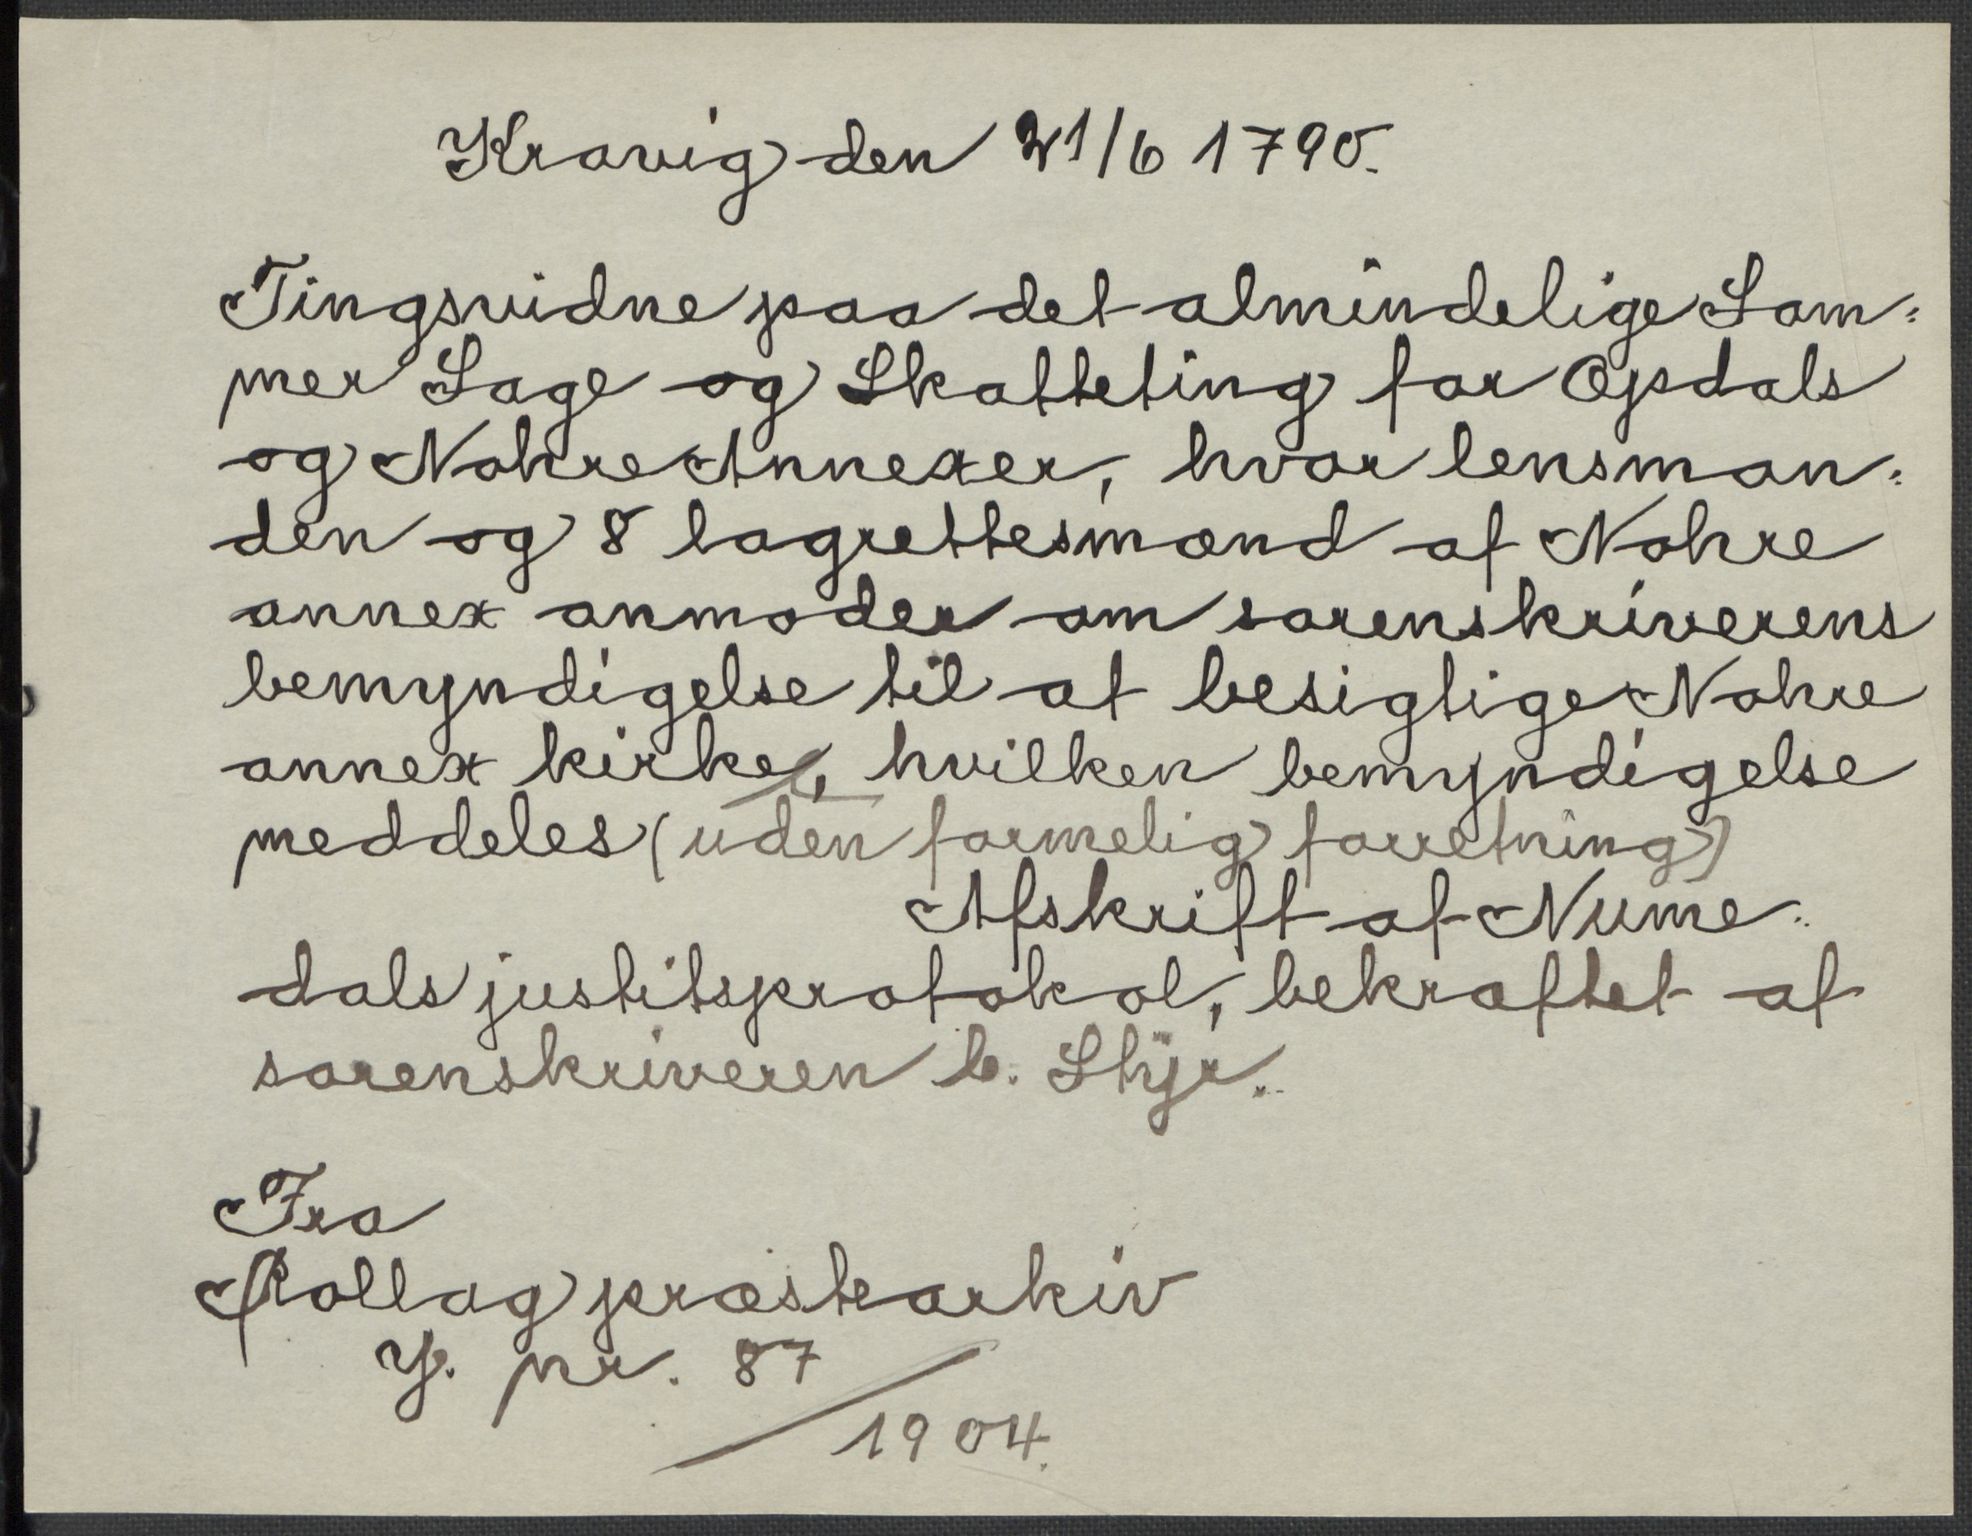 Kravig den 21/6 1790.
Tingsvidne paa det almindelige Som=
mer Sage og Skatteting for Opdals
og Nohre Annexer, hvor lensman=
den og 8 lagrettesmænd af Nohre
annex anmoder om sorenskriverens
bemyndigelse til at besigtige Nohre
annex kirke, hvilken bemyndigelse
meddeles (uden formelig forretning)
Afskrift af Nume=
dals justitsprotokol, bekræftet af
sorenskriveren b. Stÿr.
Fra
Rollag præstearkiv
J. nr. 87
/1904.